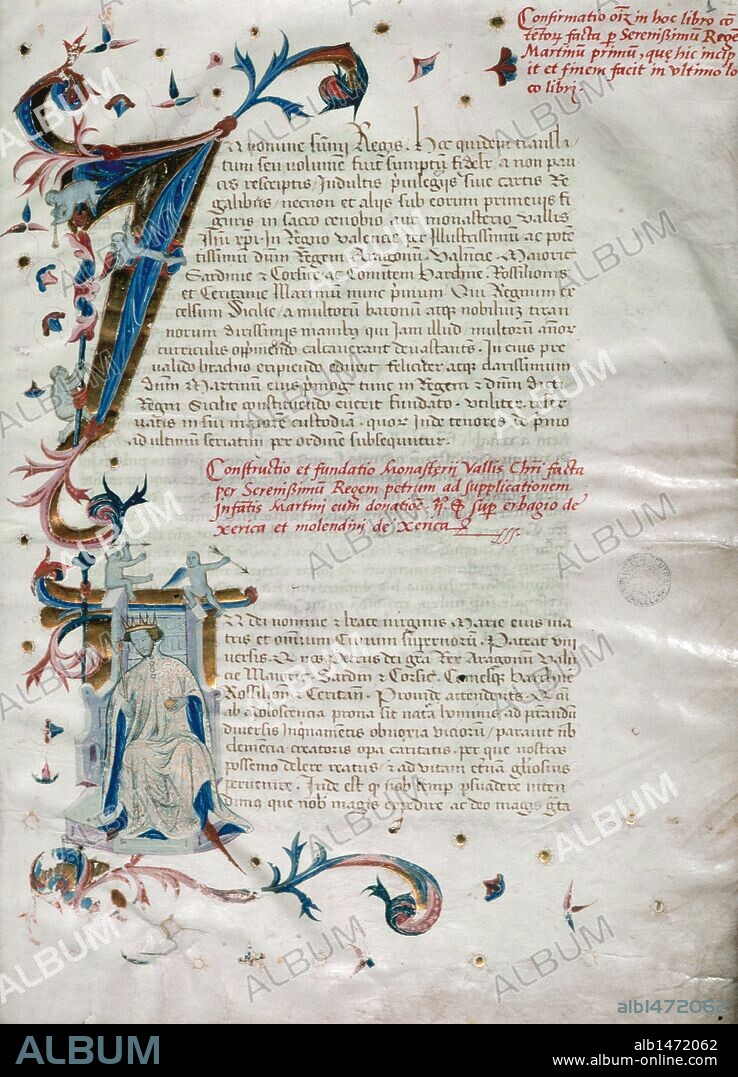 Confirmatio oīz in hoc libro cō
tētorȝ facta p̱ Serenißimū Regē
Martinū primū, quę hic incip
it et finem facit in vltimo lo
co libri.
N nomine sūmi Regis. Hoc quidem transla
tum seu volumē fuit sumptū fidelr̄ a non pau
cis rescriptis, Indultis p̄uilegijs siue cartis Re
galibus, necnon et alijs sub eorum primeuis fi
guris in sacro cenobio
Jh̄u xp̄i. In Regno Valencie per Illustrissimū ac pote
tissimū dūm Regem Aragonū. Valn̄cie. Maioric
Sardinie & Corsice ac Comitem Barchn̄e. Rossilionis
et Ceritanie Martinū nunc primum. Qui Regnum ex
celsum Sicilie, a multorū baronū atqȝ nobiliuȝ tiran
norum dirissimijs manibȝ qui Jam illud multorū annor̄
curriculis opp̄mendo calcauerant deuastantes. In eius pre
valido brachio eripiendo
dūm Martinū eius p̄mogr̄ tunc in Regem & dūm dicti
Regni Sicilie constituendo
ad ultimū seriatim per ordinē subsequitur.
Constructio et fundatio Monasterij Vallis Chr̄i facta
per Serenißimū Regem petrum ad supplicationem
Infātis Martini cum donatiōe
xerica et molendini de xerica
N dei nomine & beate virginis Marie eius ma
tris et omnium Ciuium supernorū. Pateat vni
versis. Q nos Petrus dei gr̄a Rex Aragonū. Valn̄
cie Maioric̄ Sardin̄ & Corsic̄. Comesqȝ Barchn̄e
Rossilion̄ & Ceritan̄. Prouide attendentes q̄ cū
ab adolescencia prona sit natā hominis ad
diversis Inquinamentis obnoxia viciorū, parauit nō
clemencia creatoris opa caritatis. per que nostros
possemo delere reatus, & ad vitam et̄nā gl̄iosius
pervenire. Inde est q̄ nob̄ semp̄ p̱suadere inten
dimȝ que nob̄ magis expedire ac deo magis gr̄a
1
ALBUM
alb1472062
ALBUM
alb1472062
www.album-online.com